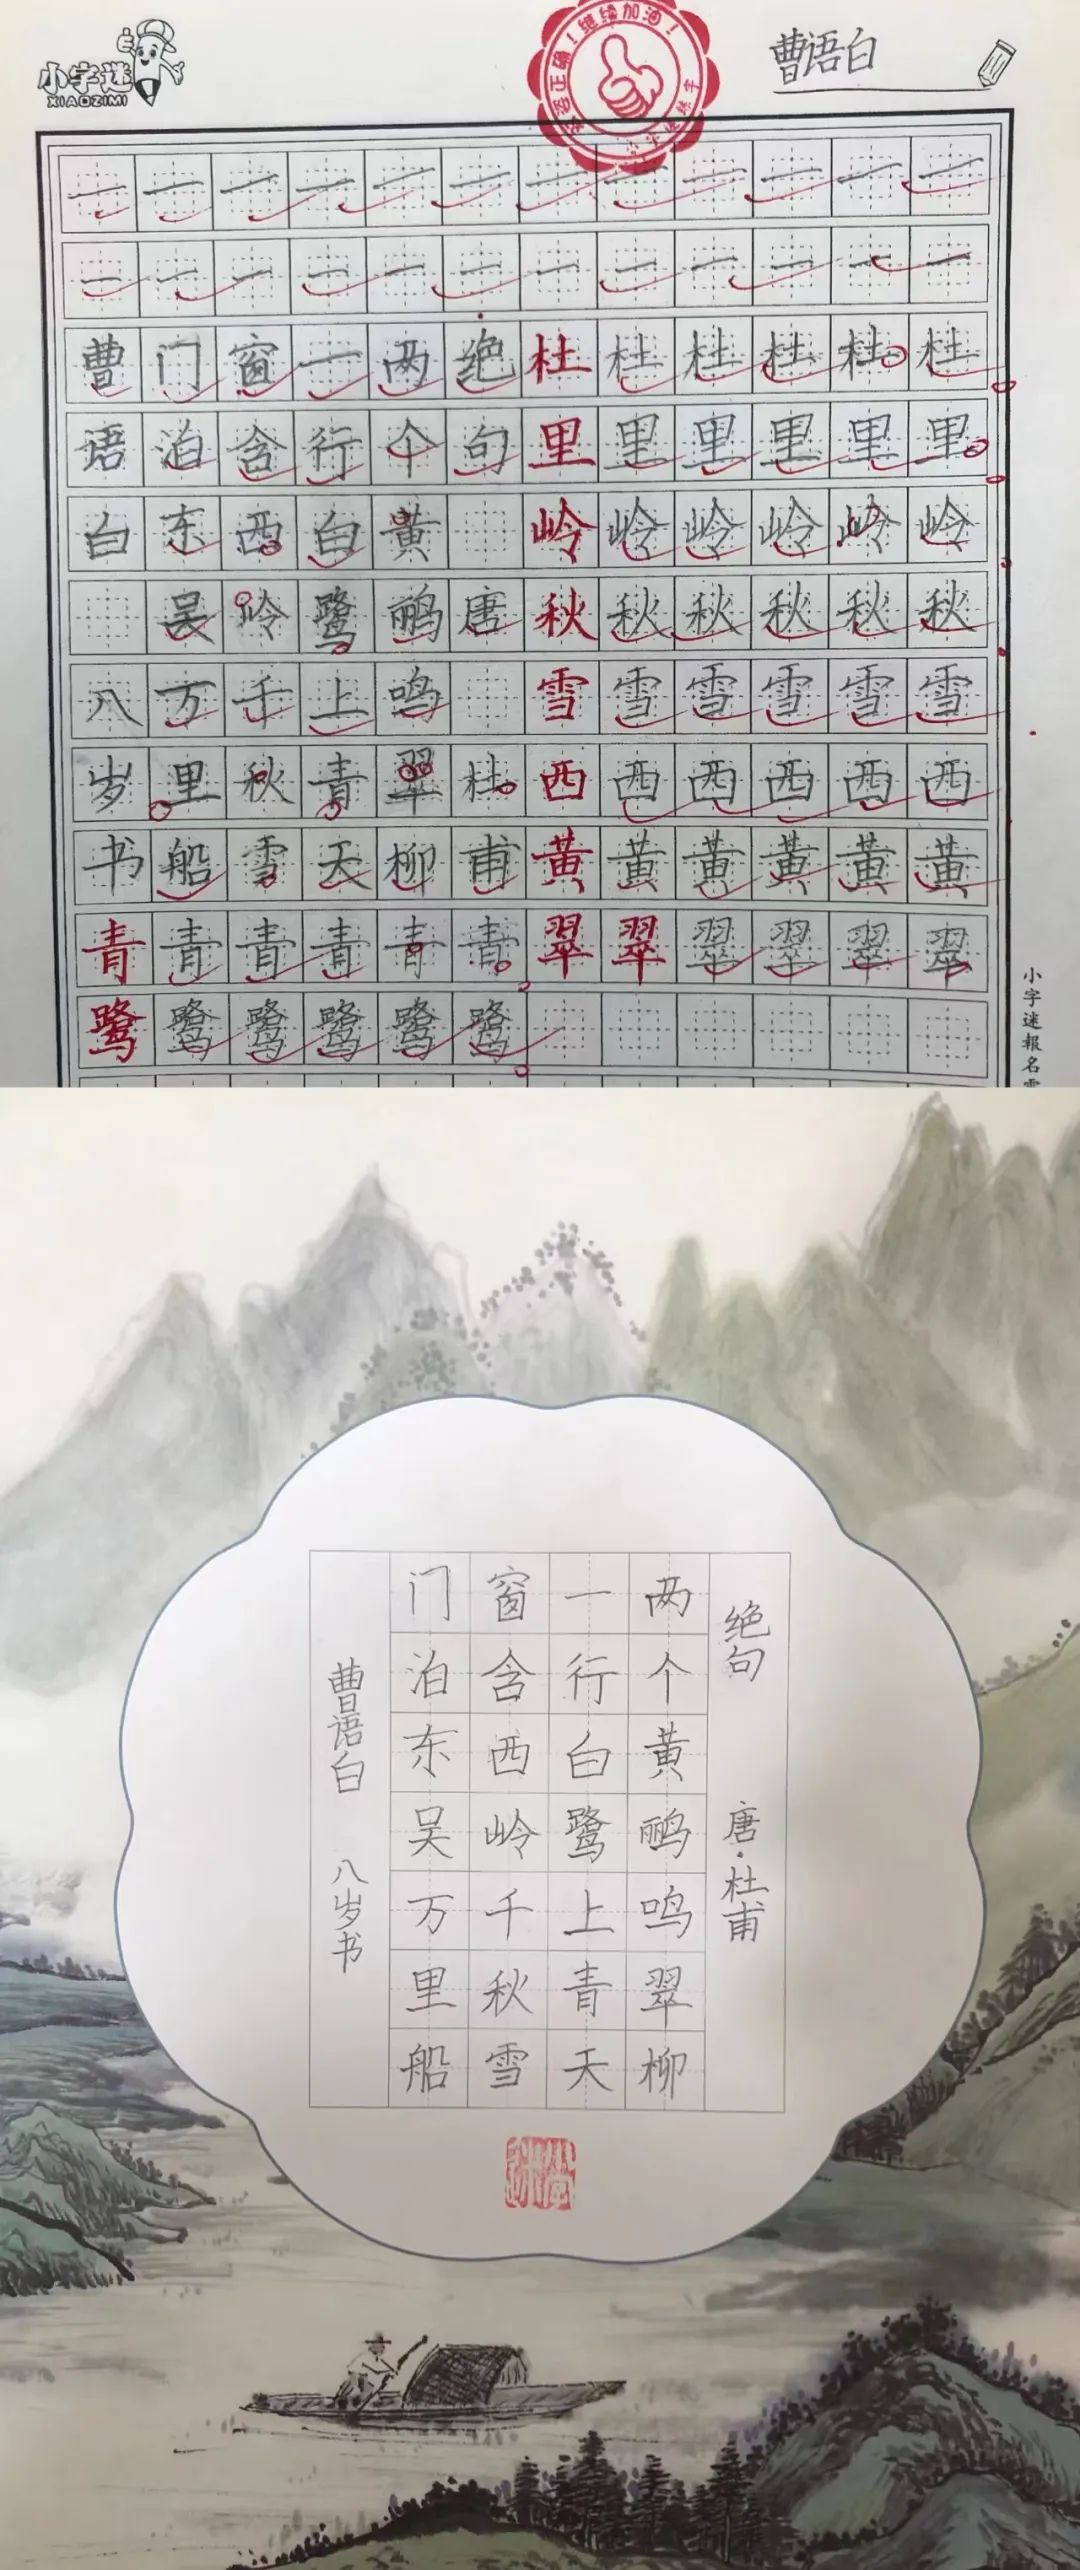 小字迷
XIAOZIMI
继续加油！
曹语白
一一一一一一一一一一一一
一一一一一一一一一一一一
曹门窗一两绝杜杜杜杜杜杜
语泊含行个句里里里里里里
白东西白黄岭岭岭岭岭岭
吴岭鹭鹂唐秋秋秋秋秋秋
八万千上鸣雪雪雪雪雪雪
岁里秋青翠杜西西西西西西
书船雪天柳甫黄黄黄黄黄黄
青青青青青青翠翠翠翠翠翠
鹭鹭鹭鹭鹭鹭
小字迷報名
绝句 唐·杜甫
两个黄鹂鸣翠柳
一行白鹭上青天
窗含西岭千秋雪
门泊东吴万里船
曹语白 八岁书